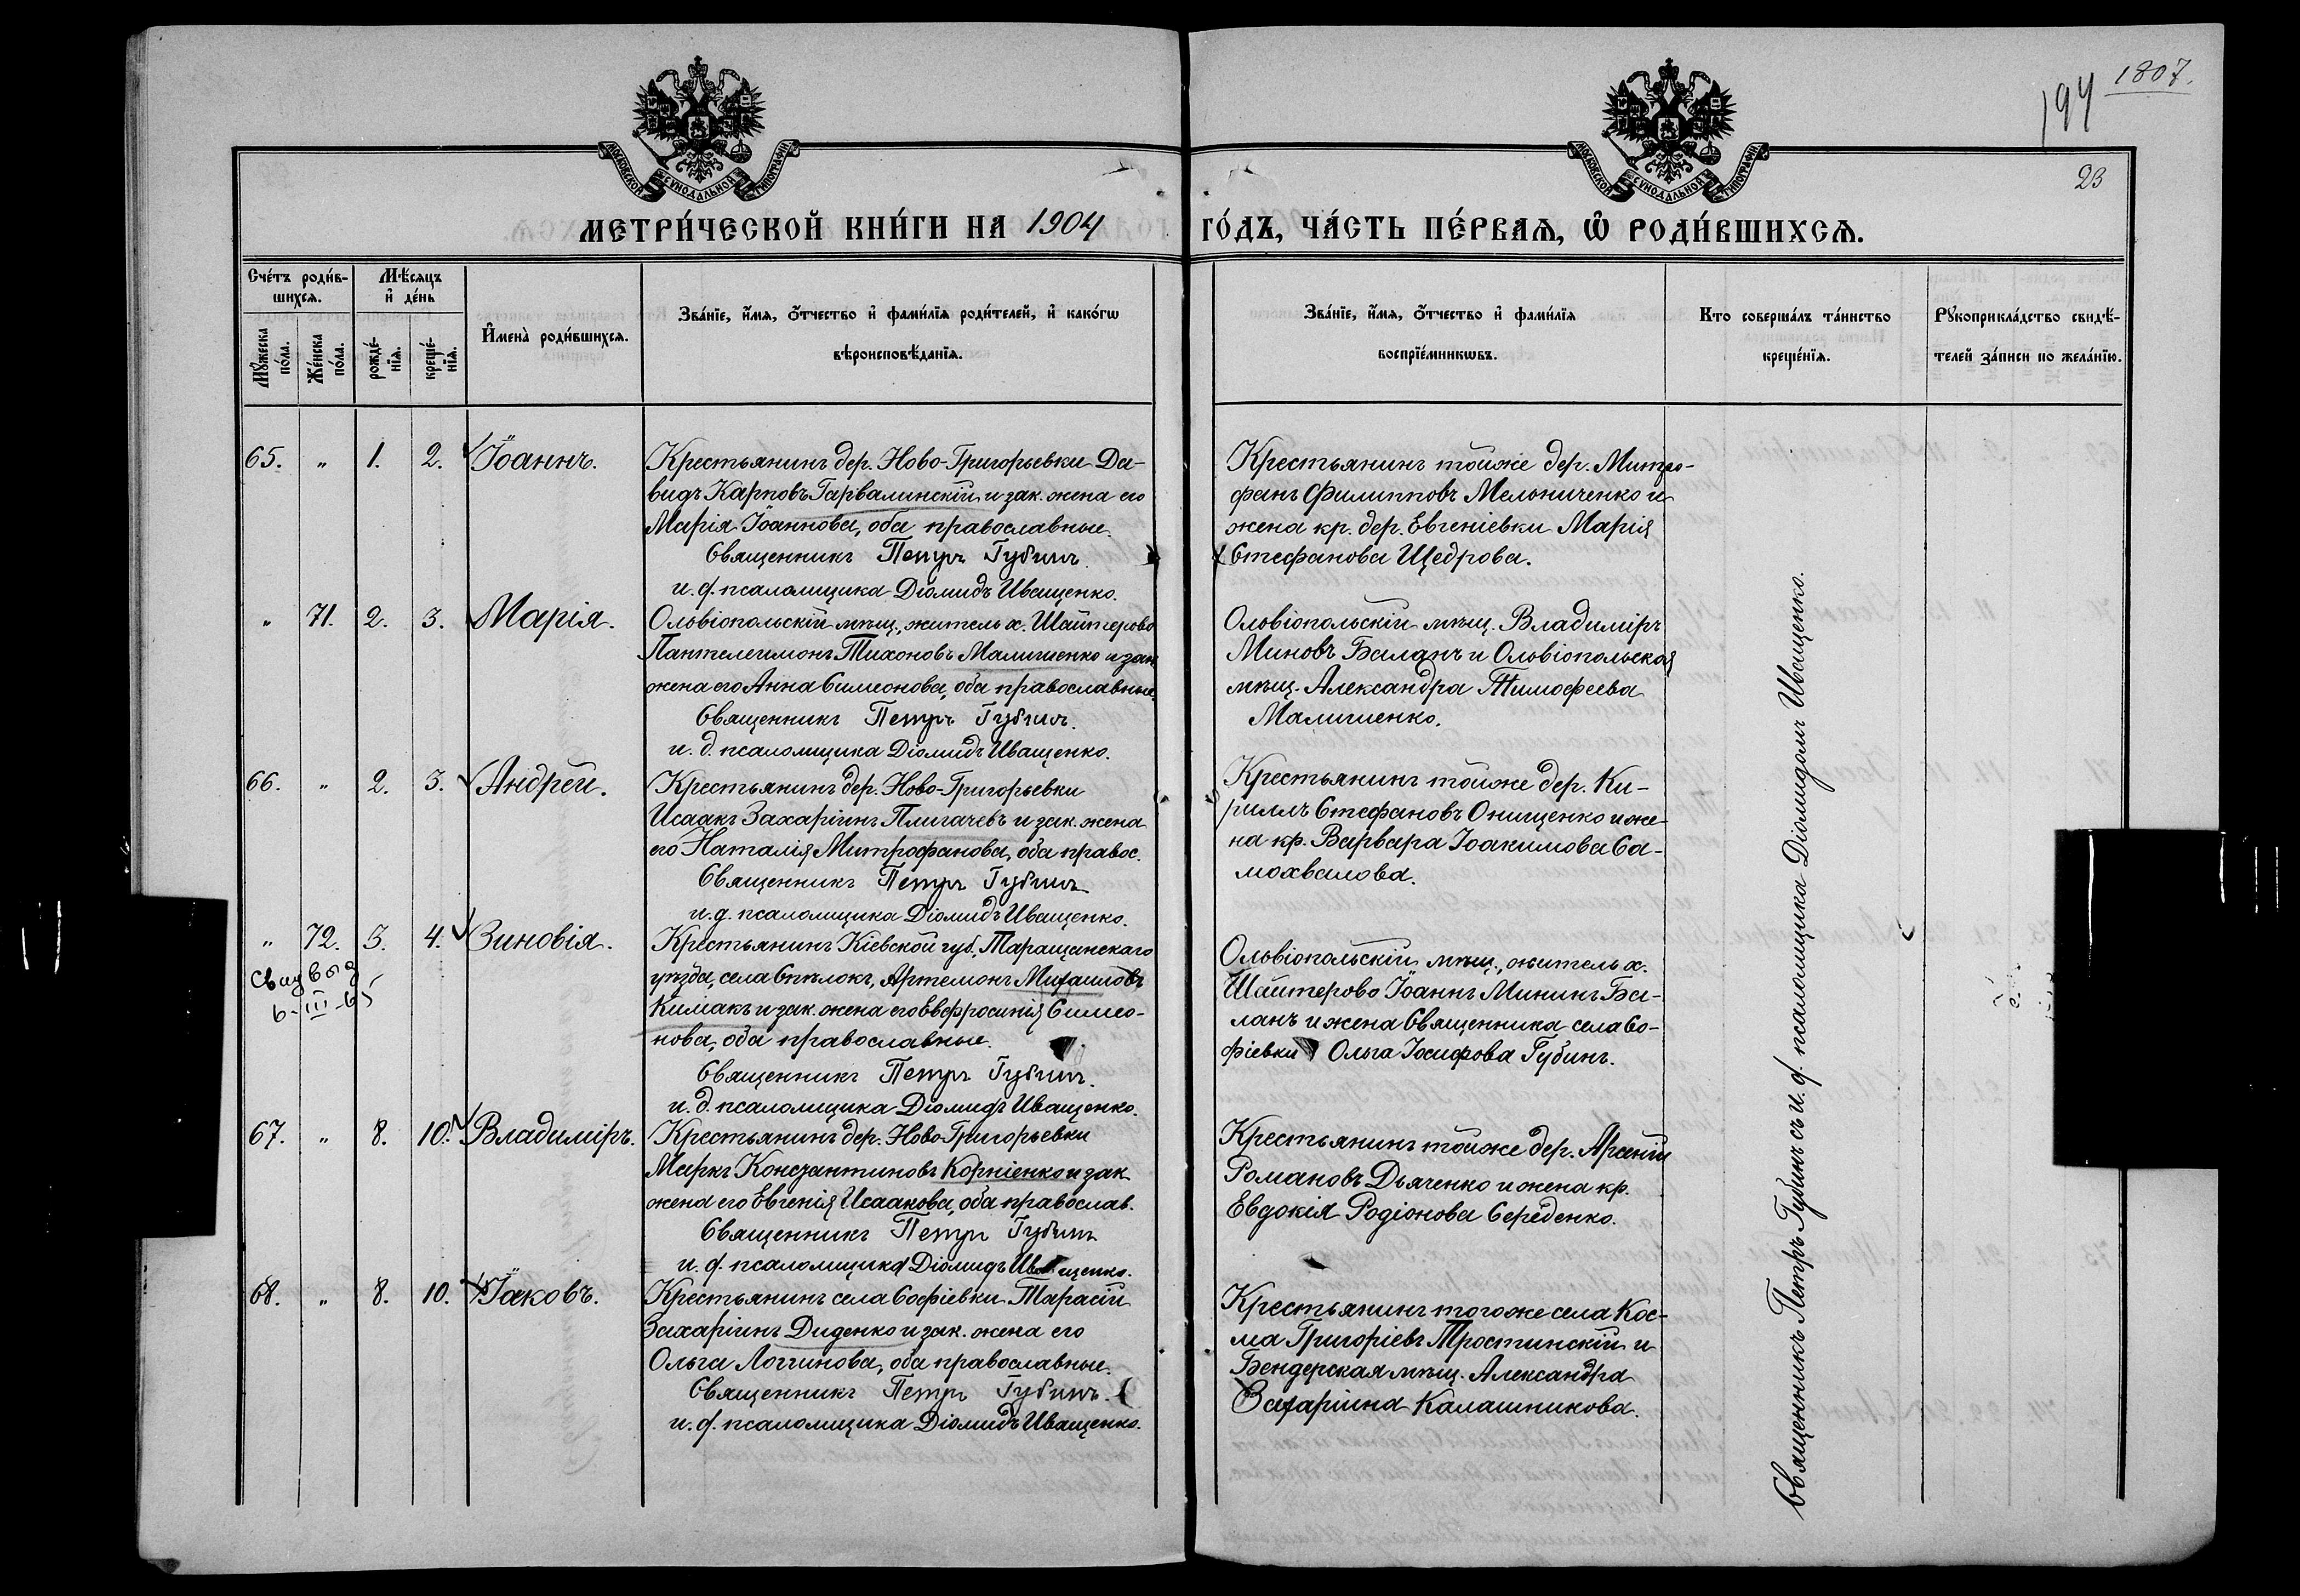 1807.
194
23
МОСКОВСКОЙ СУНОДАЛЬНОЙ ТИПОГРАФІИ
МОСКОВСКОЙ СУНОДАЛЬНОЙ ТИПОГРАФІИ
МЕТРИ́ЧЕСКОЙ КНИ́ГИ НА 1904 ГО́ДЪ, ЧА́СТЬ ПЕ́РВАѦ, Ѡ РОДИ́ВШИХСѦ.
Счéтъ роди́в-
шихсѧ.
Мꙋ́жеска
по́ла.
Же́нска
по́ла.
Мѣ́сѧцъ
и҆ де́нь
рожде́-
нїѧ.
креще́-
нїѧ.
И҆мена̀ роди́вшихсѧ.
Зва́нїе, и҆́мѧ, ѻ҆́тчество и҆ фами́лїѧ роди́телей, и҆ како́гѡ
вѣроисповѣ́данїѧ.
Зва́нїе, и҆́мѧ, ѻ҆́тчество и҆ фами́лїѧ
воспрїе́мникѡвъ.
Кто соверша́лъ та́инство
креще́нїѧ.
Рꙋкоприкла́дство свидѣ́-
телей за́писи по жела́нїю.
65. " 1. 2. Іоаннъ.
Крестьянинъ дер. Ново-Григорьевки Да-
видъ Карповъ Гарвалинскій и зак. жена его
Марія Іоаннова, оба православные.
Священникъ Петръ Губинъ.
и. д. псаломщика Діомидъ Иващенко.
Крестьянинъ тойже дер. Митро-
фанъ Филипповъ Мельниченко и
жена кр. дер. Евгеніевки Марія
Стефанова Щедрова.
" 71. 2. 3. Марія.
Ольвіопольскій мѣщ., житель х. Шайтерово
Пантелеимонъ Тихоновъ Малишенко и зак.
жена его Анна Симеонова, оба православные.
Священникъ Петръ Губинъ.
и. д. псаломщика Діомидъ Иващенко.
Ольвіопольскій мѣщ. Владиміръ
Миновъ Баланъ и Ольвіопольская
мѣщ. Александра Тимофеева
Малишенко.
66. " 2. 3. Андрей.
Крестьянинъ дер. Ново-Григорьевки
Исаакъ Захаріинъ Плигачевъ и зак. жена
его Наталія Митрофанова, оба правос.
Священникъ Петръ Губинъ
и. д. псаломщика Діомидъ Иващенко.
Крестьянинъ тойже дер. Ки-
риллъ Стефановъ Онищенко и же-
на кр. Варвара Іоакимова Са-
мохвалова.
" 72. 3. 4. Зиновія.
6-III-65
Крестьянинъ Кіевской губ., Таращанскаго
уѣзда, села Стѣлокъ, Артемонъ Михаиловъ
Кимакъ и зак. жена его Евфросинія Симео-
нова, оба православные.
Священникъ Петръ Губинъ.
и. д. псаломщика Діомидъ Иващенко.
Ольвіопольскій мѣщ., житель х.
Шайтерово Іоаннъ Мининъ Ба-
ланъ и жена Священника села Со-
фіевки Ольга Іосифова Губинъ.
67. " 8. 10. Владиміръ.
Крестьянинъ дер. Ново-Григорьевки
Маркъ Константиновъ Корніенко и зак.
жена его Евгенія Исаакова, оба православ.
Священникъ Петръ Губинъ
и. д. псаломщика Діомидъ Иващенко.
Крестьянинъ тойже дер. Арсеній
Романовъ Дьяченко и жена кр.
Евдокія Родіонова Середенко.
68. " 8. 10. Іаковъ.
Крестьянинъ села Софіевки Тарасій
Захаріинъ Диденко и зак. жена его
Ольга Логгинова, оба православные.
Священникъ Петръ Губинъ.
и. д. псаломщика Діомидъ Иващенко.
Крестьянинъ тогоже села Кос-
ма Григоріевъ Тростинскій и
Бендерская мѣщ. Александра
Захаріина Калашникова.
Священникъ Петръ Губинъ съ и. д. псаломщика Діомидомъ Иващенко.